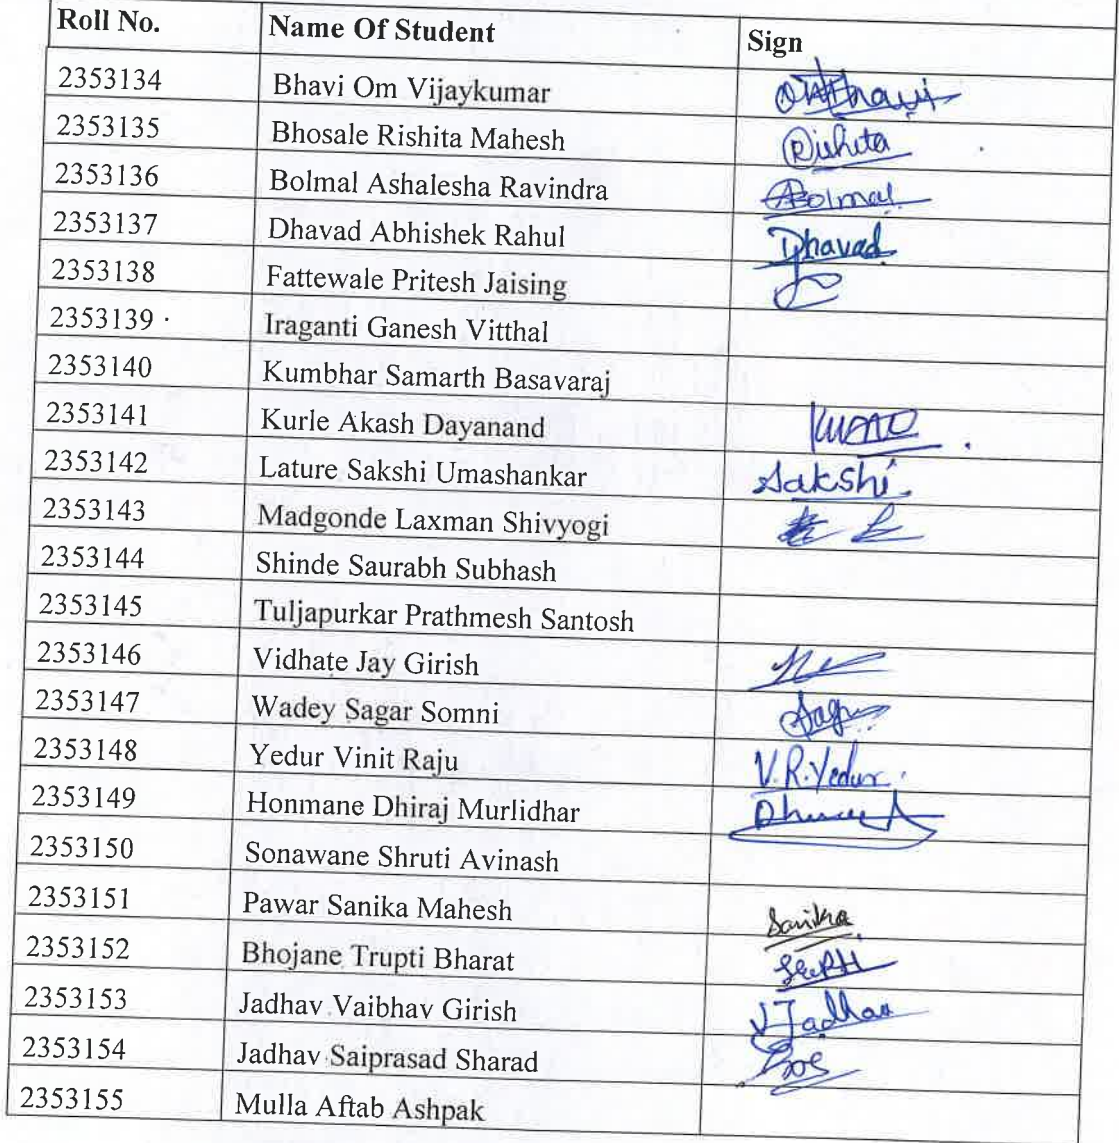 Roll No. Name Of Student Sign
2353134 Bhavi Om Vijaykumar
2353135 Bhosale Rishita Mahesh Rishita
2353136 Bolmal Ashalesha Ravindra ABolmal
2353137 Dhavad Abhishek Rahul Dhavad
2353138 Fattewale Pritesh Jaising
2353139 Iraganti Ganesh Vitthal
2353140 Kumbhar Samarth Basavaraj
2353141 Kurle Akash Dayanand
2353142 Lature Sakshi Umashankar Sakshi.
2353143 Madgonde Laxman Shivyogi
2353144 Shinde Saurabh Subhash
2353145 Tuljapurkar Prathmesh Santosh
2353146 Vidhate Jay Girish
2353147 Wadey Sagar Somni
2353148 Yedur Vinit Raju V.R.Yedur.
2353149 Honmane Dhiraj Murlidhar
2353150 Sonawane Shruti Avinash
2353151 Pawar Sanika Mahesh Sanika
2353152 Bhojane Trupti Bharat
2353153 Jadhav Vaibhav Girish VJadhav
2353154 Jadhav Saiprasad Sharad
2353155 Mulla Aftab Ashpak